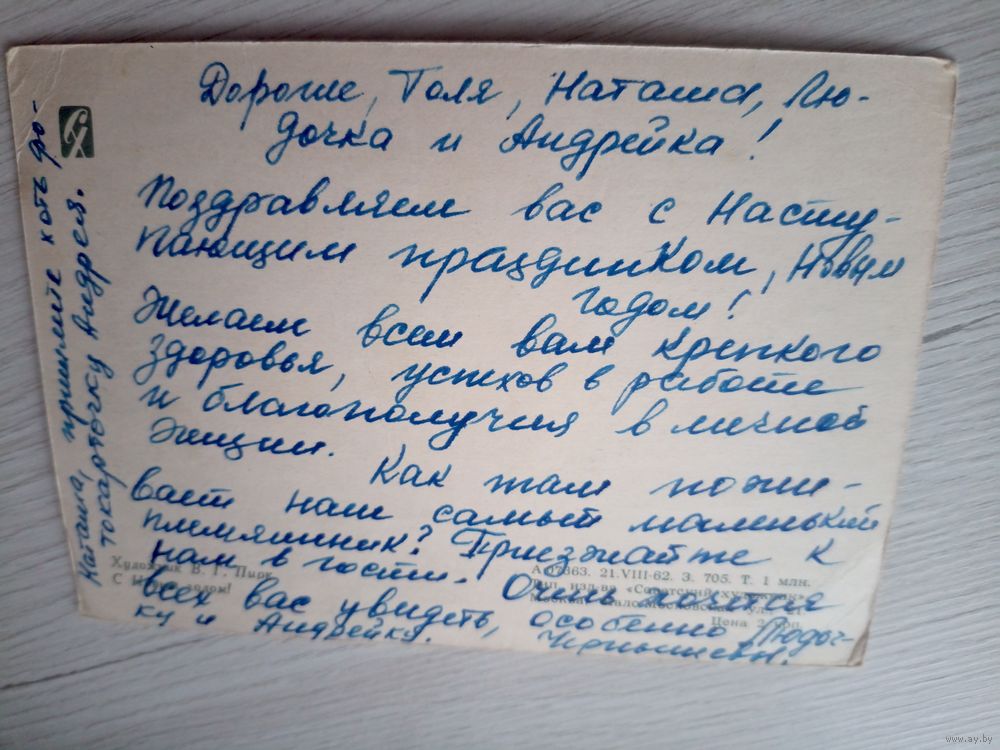 Дорогие, Толя, Наташа, Лю-
дочка и Андрейка!
Поздравляем вас с Насту-
пающим праздником, Новым
годом!
Желаем всем вам крепкого
здоровья, успехов в работе
и благополучия в личной
жизни.
Как там пожи-
вает наш самый маленький
племянник? Приезжайте к
нам в гости. Очень
всех вас увидеть, особенно Людоч-
ку и Андрейку.
Наташа, пришлите хоть фо-
токарточку Андрея.
Художник В. Г.
С Новым годом!
А 07363. 21.VIII-62. З. 705. Т. 1 млн.
Тип. изд-ва «Советский художник»
Москва,
Цена 2 коп.
www.ay.by